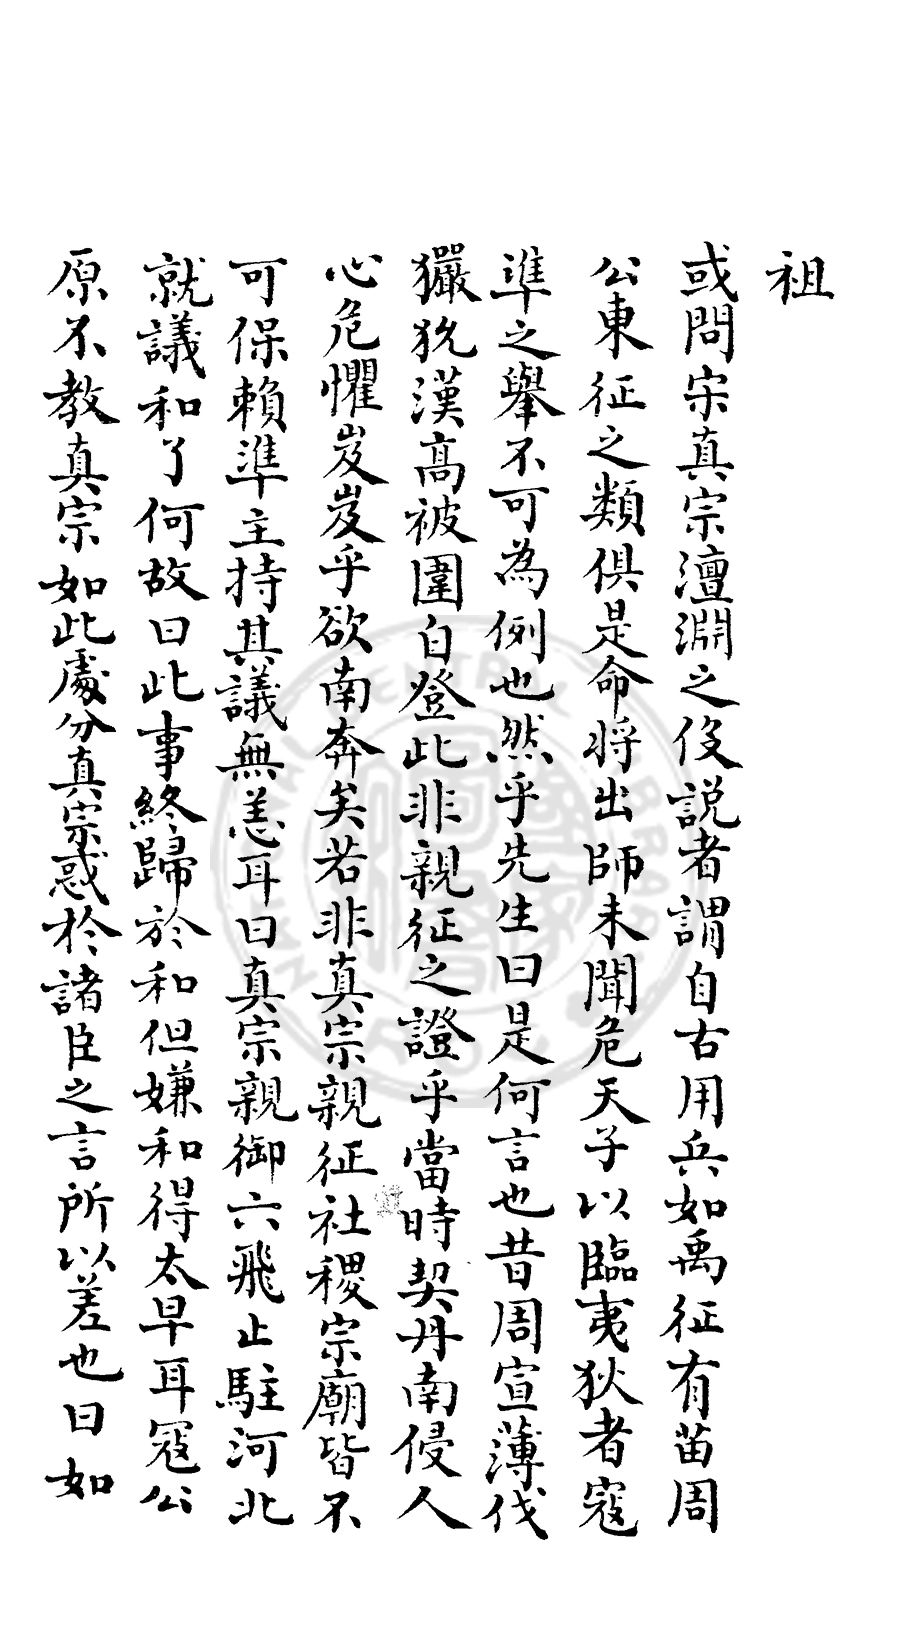 祖
或問宋真宗澶淵之役説者謂自古用兵如禹征有苗周
公東征之類俱是命将出師未聞危天子以臨夷狄者寇
準之舉不可為例也然乎先生曰是何言也昔周宣薄伐
玁狁漢高被圍白登此非親征之證乎當時契丹南侵人
心危懼岌岌乎欲南奔矣若非真宗親征社稷宗廟皆不
可保賴準主持其議無恙耳曰真宗親御六飛止駐河北
就議和了何故曰此事終歸於和但嫌和得太早耳寇公
原不教真宗如此處分真宗惑於諸臣之言所以差也曰如